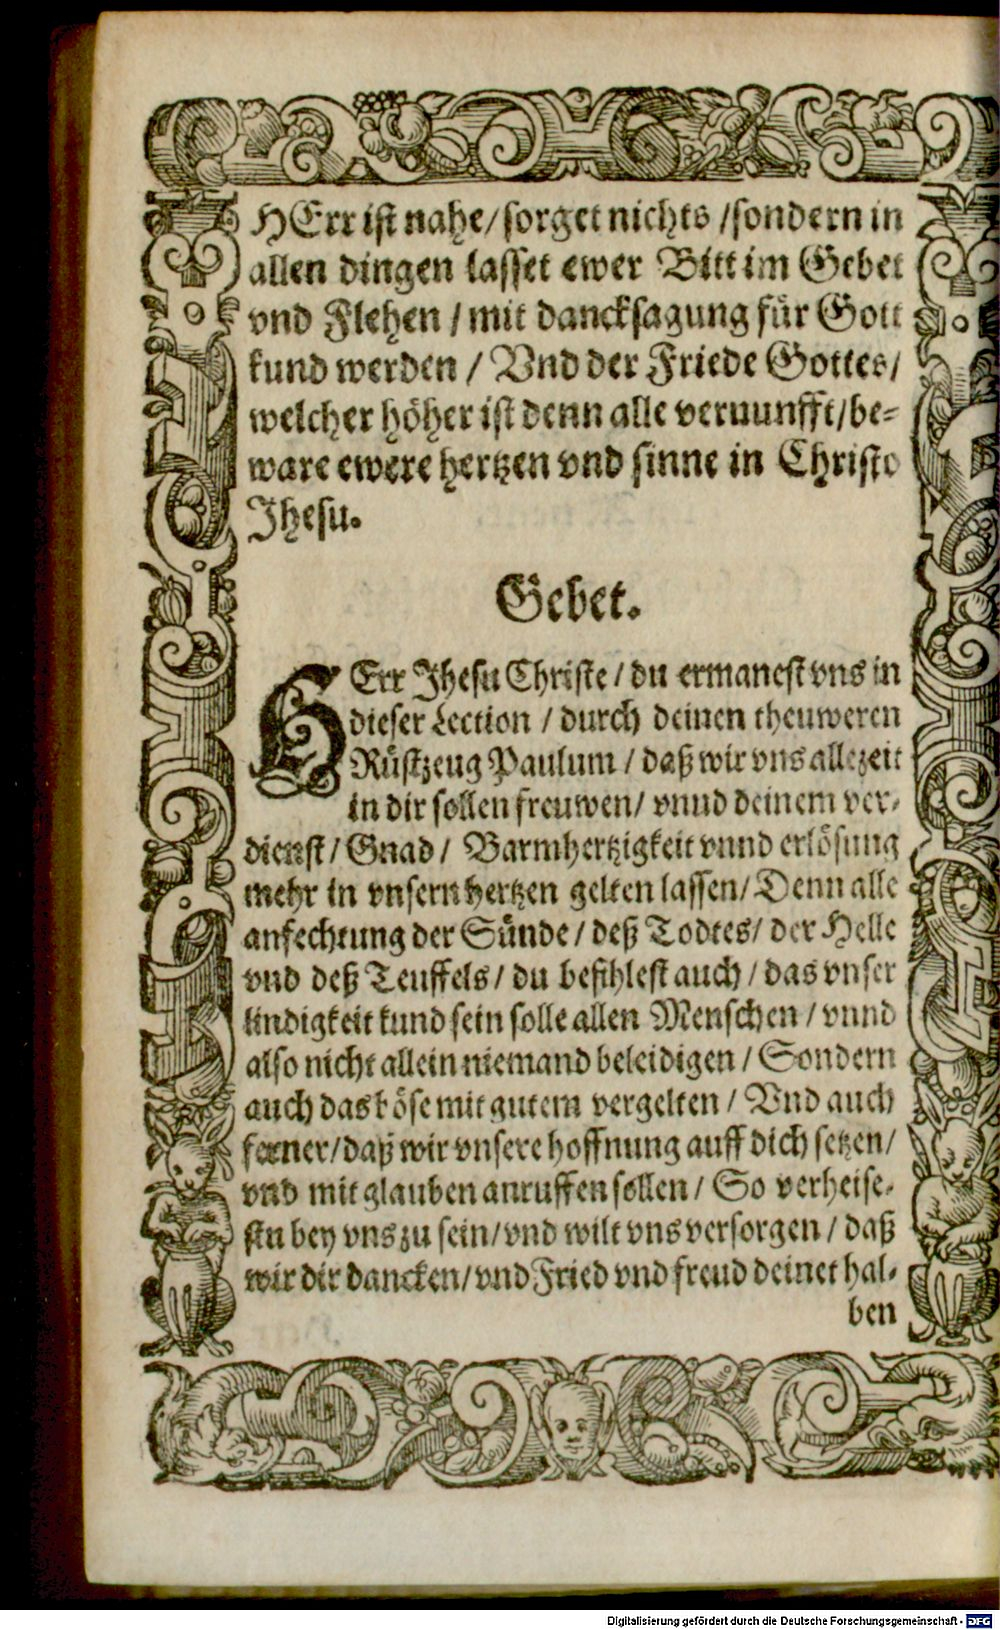 HErr ist nahe/ sorget nichts /sondern in
allen dingen lasset ewer Bitt im Gebet
vnd Flehen / mit dancksagung für Gott
kund werden / Vnd der Friede Gottes/
welcher höher ist denn alle veruunfft/be-
ware ewere hertzen vnd sinne in Christo
Jhesu.
Gebet.
HErr Jhesu Christe / du ermanest vns in
dieser Lection / durch deinen theuweren
Rüstzeug Paulum / daß wir vns allezeit
in dir sollen freuwen/ vnnd deinem ver-
dienst/ Gnad/ Barmhertzigkeit vnnd erlösung
mehr in vnsern hertzen gelten lassen/ Denn alle
anfechtung der Sünde/ deß Todtes/ der Helle
vnd deß Teuffels/ du befihlest auch/ das vnser
lindigkeit kund sein solle allen Menschen / vnnd
also nicht allein niemand beleidigen / Sondern
auch das böse mit gutem vergelten / Vnd auch
ferner/daß wir vnsere hoffnung auff dich setzen/
vnd mit glauben anruffen sollen/ So verheise-
stu bey vns zu sein/vnd wilt vns versorgen / daß
wir dir dancken/vnd Fried vnd freud deinet hal-
ben
Digitalisierung gefördert durch die Deutsche Forschungsgemeinschaft - DFG